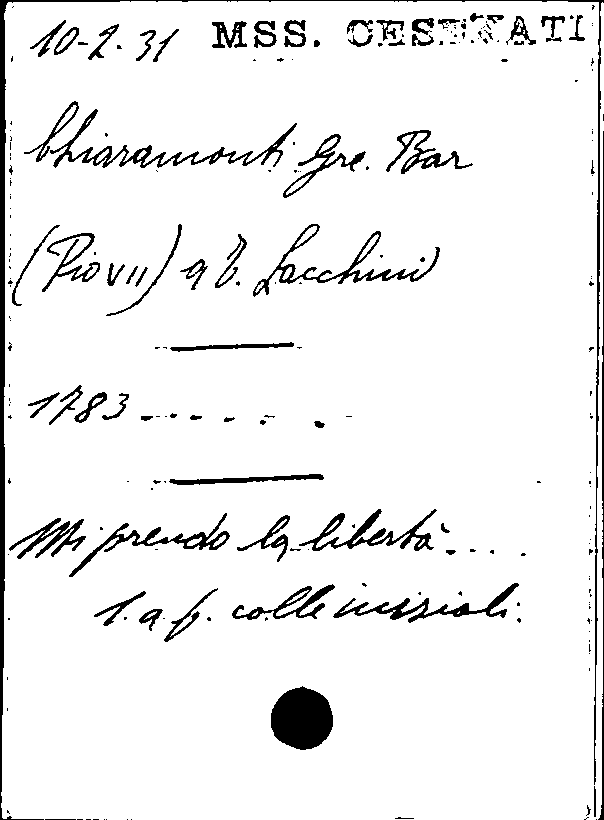 10-2-31 MSS. CESENATI
Chiaramonti Gre. Bar
(Pio VII) a V. Lacchini
1783 - . - - . .
Mi prendo la libertà....
l. a f. colle iniziali.